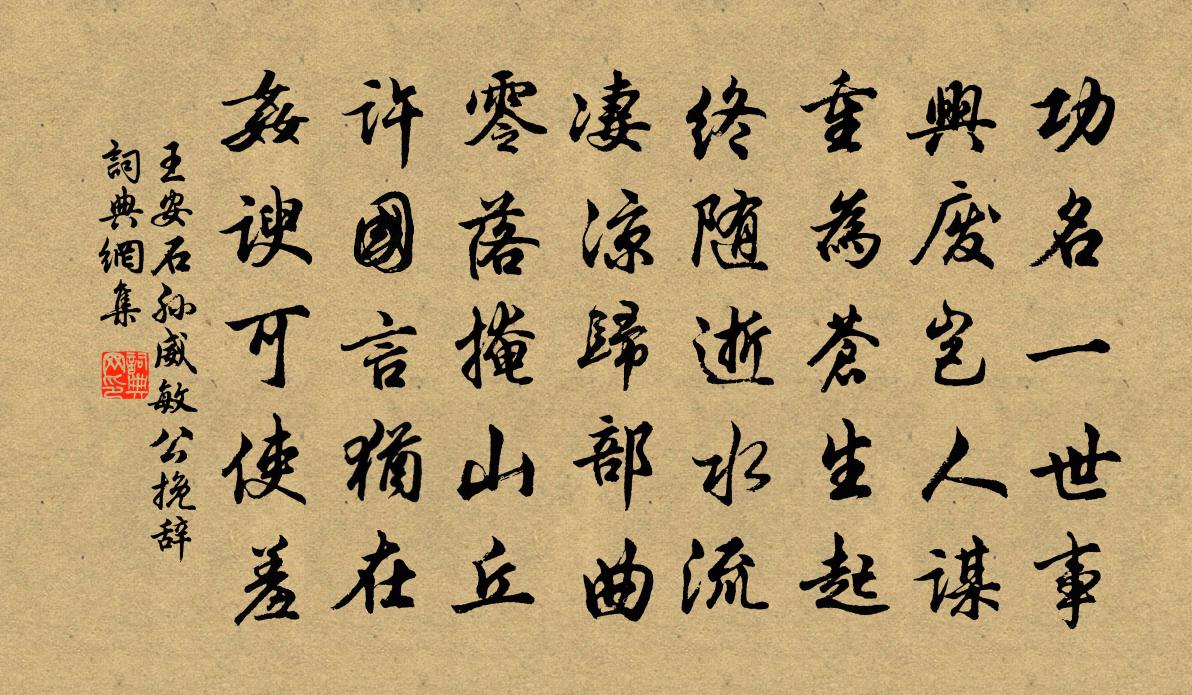 功名一世事
興廢豈人謀
重為蒼生起
終随逝水流
凄涼歸部曲
零落掩山丘
許國言猶在
姦諛可使羞
王安石孙威敏公挽辞
詞典網集
詞典
网印